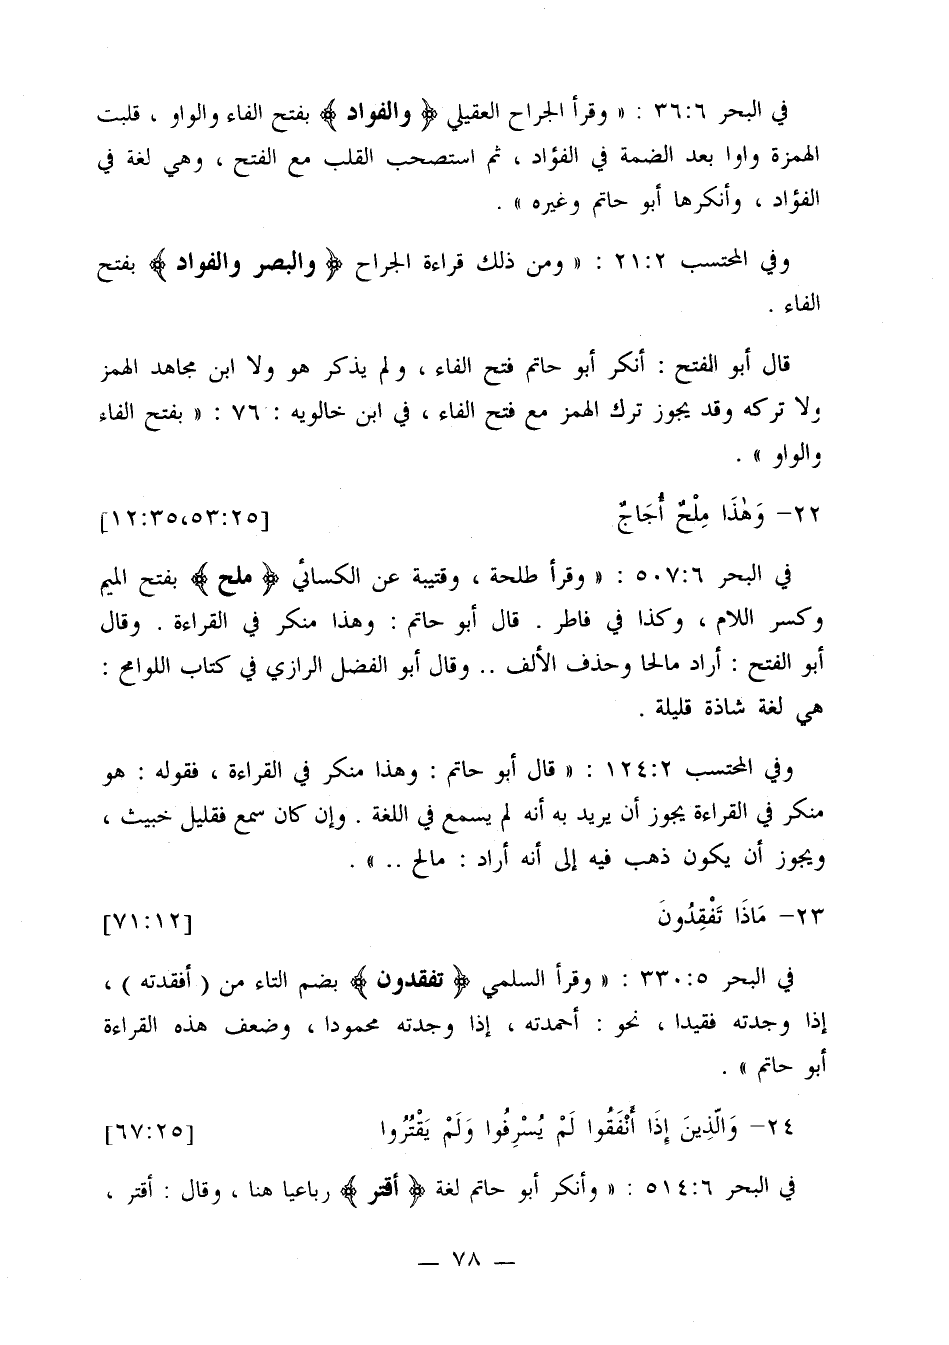 في البحر ٣٦:٦ : « وقرأ الجراح العقيلي ﴿ والفواد ﴾ بفتح الفاء والواو ، قلبت
الهمزة واوا بعد الضمة في الفؤاد ، ثم استصحب القلب مع الفتح ، وهي لغة في
الفؤاد ، وأنكرها أبو حاتم وغيره » .
وفي المحتسب ٢١:٢ : « ومن ذلك قراءة الجراح ﴿ والبصر والفواد ﴾ بفتح
الفاء .
قال أبو الفتح : أنكر أبو حاتم فتح الفاء ، ولم يذكر هو ولا ابن مجاهد الهمز
ولا تركه وقد يجوز ترك الهمز مع فتح الفاء ، في ابن خالويه : ٧٦ : « بفتح الفاء
والواو » .
٢٢- وَهٰذَا مِلْحٌ أُجَاجٌ [١٢:٣٥،٥٣:٢٥]
في البحر ٥٠٧:٦ : « وقرأ طلحة ، وقتيبة عن الكسائي ﴿ ملح ﴾ بفتح الميم
وكسر اللام ، وكذا في فاطر . قال أبو حاتم : وهذا منكر في القراءة . وقال
أبو الفتح : أراد مالحا وحذف الألف .. وقال أبو الفضل الرازي في كتاب اللوامح :
هي لغة شاذة قليلة .
وفي المحتسب ١٢٤:٢ : « قال أبو حاتم : وهذا منكر في القراءة ، فقوله : هو
منكر في القراءة يجوز أن يريد به أنه لم يسمع في اللغة . وإن كان سمع فقليل خبيث ،
ويجوز أن يكون ذهب فيه إلى أنه أراد : مالح .. » .
٢٣- مَاذَا تَفْقِدُونَ [٧١:١٢]
في البحر ٣٣٠:٥ : « وقرأ السلمي ﴿ تفقدون ﴾ بضم التاء من ( أفقدته ) ،
إذا وجدته فقيدا ، نحو : أحمدته ، إذا وجدته محمودا ، وضعف هذه القراءة
أبو حاتم » .
٢٤- وَالَّذِينَ إِذَا أَنْفَقُوا لَمْ يُسْرِفُوا وَلَمْ يَقْتُرُوا [٦٧:٢٥]
في البحر ٥١٤:٦ : « وأنكر أبو حاتم لغة ﴿ أقتر ﴾ رباعيا هنا ، وقال : أقتر ،
— ٧٨ —